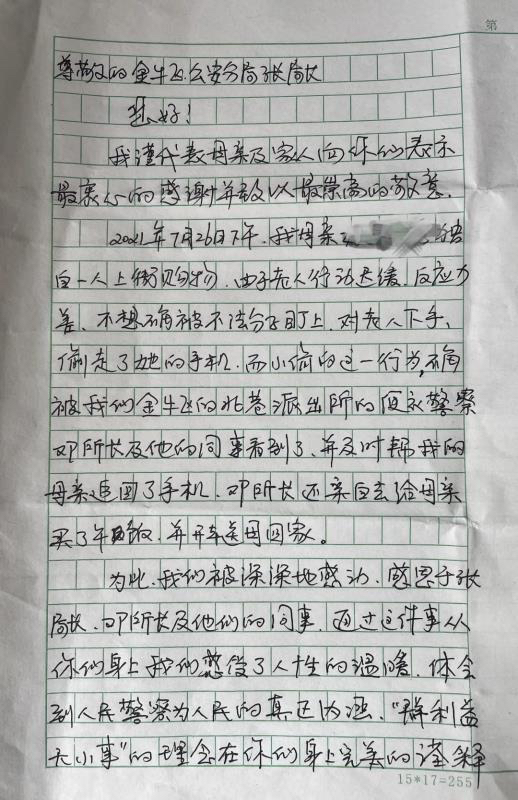 第
尊敬的金牛区公安分局张局长
您好!
我谨代表母亲及家人向你们表示
最衷心的感谢并致以最崇高的敬意.
2021年7月26日下午.我母亲 独
自一人上街购物.由于老人行动迟缓.反应力
差.不想确被不法分子盯上.对老人下手,
偷走了她的手机.而小偷的这一行为,确
被我们金牛区的北巷派出所的便衣警察
邓所长及他的同事看到了.并及时帮我的
母亲追回了手机.邓所长还亲自去给母亲
买了午饭.并开车送母回家。
为此.我们被深深地感动.感恩于张
局长.邓所长及他们的同事.通过这件事从
你们身上我们感受了人性的温暖.体会
到人民警察为人民的真正内涵."群利益
无小事"的理念在你们身上完美的诠释
15*17=255